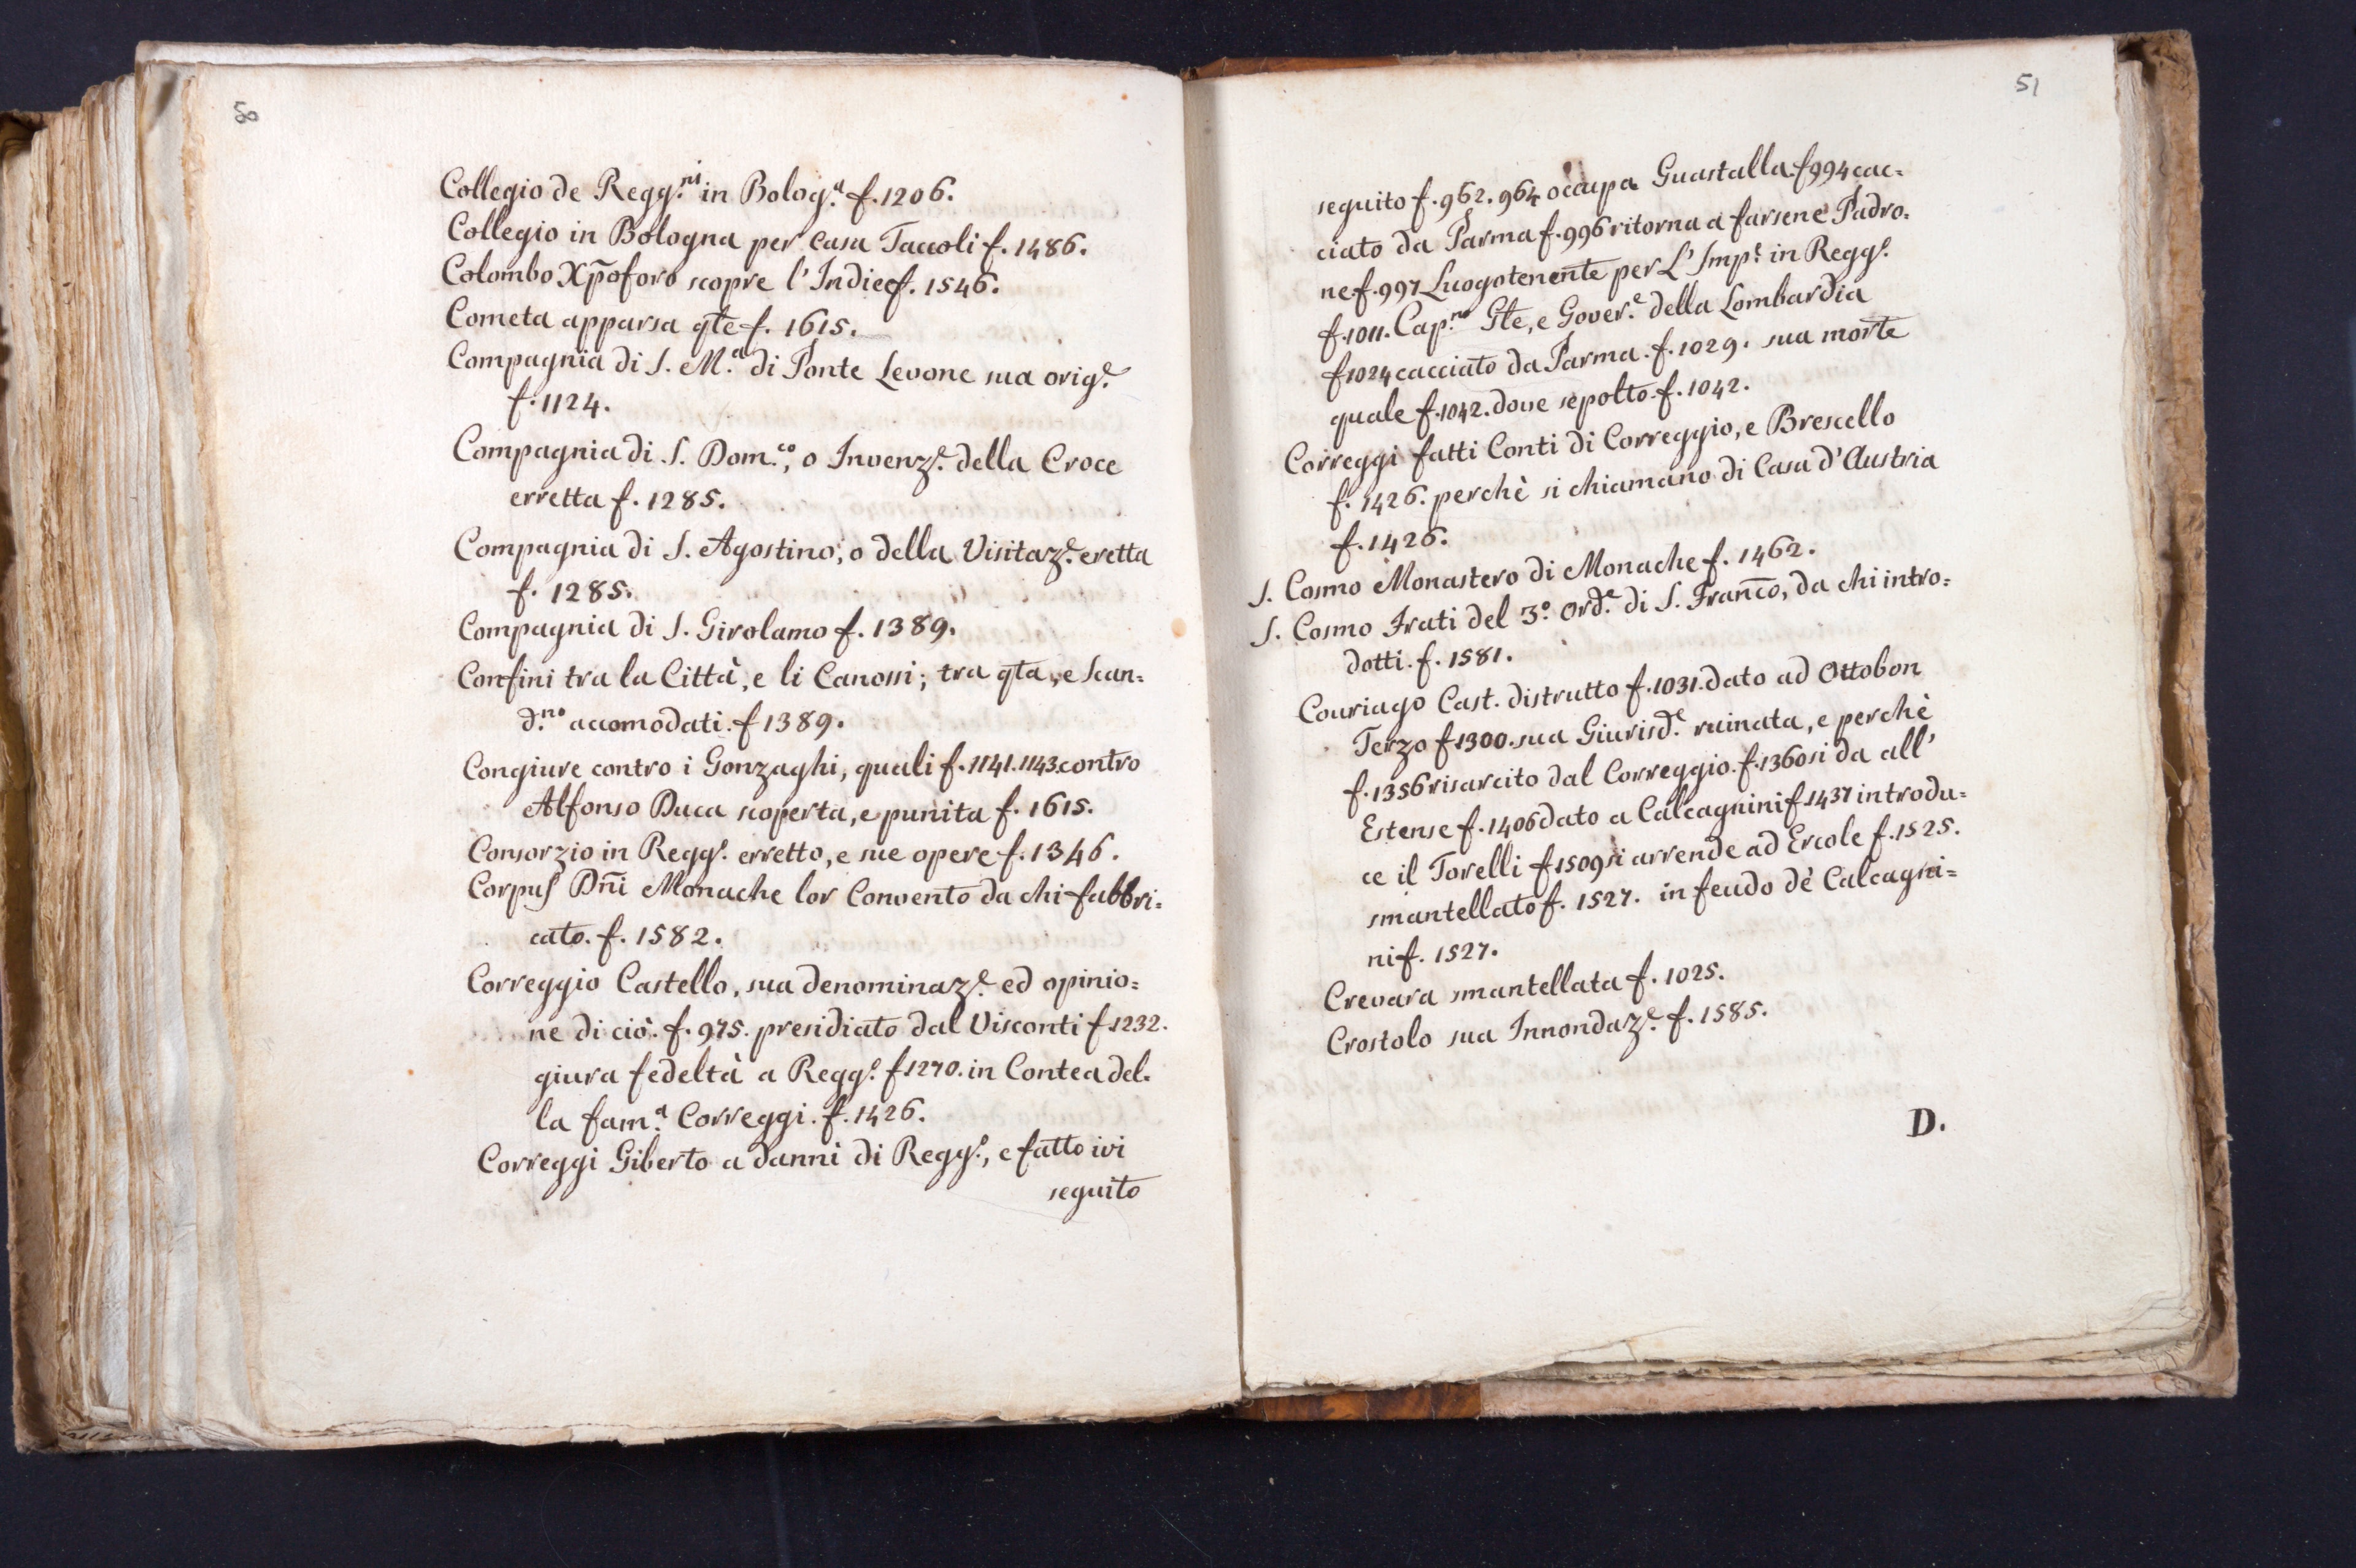 50
Collegio de Regg.ni in Bolog.a f. 1206.
Collegio in Bologna per Casa Taccoli f. 1486.
Colombo Xp̃oforo scopre l' Indie f. 1546.
Cometa apparsa q̃le f. 1615.
Compagnia di S. M.a di Ponte Levone sua orig.e
f. 1124.
Compagnia di S. Dom.co, o Invenz.e della Croce
erretta f. 1285.
Compagnia di S. Agostino, o della Visitaz.e eretta
f. 1285.
Compagnia di S. Girolamo f. 1389.
Confini tra la Città, e li Canossi; tra q̃ta, e Scan=
d.no accomodati. f 1389.
Congiure contro i Gonzaghi, quali f. 1141. 1143. contro
Alfonso Duca scoperta, e punita f. 1615.
Consorzio in Regg.o erretto, e sue opere f. 1346.
Corpus Dñi Monache lor Convento da chi fabbri=
cato. f. 1582.
Correggio Castello, sua denominaz.e ed opinio=
ne di ciò. f. 975. presidiato dal Visconti f 1232.
giura fedeltà a Regg.o f 1270. in Contea del=
la fam.a Correggi. f. 1426.
Correggi Giberto a danni di Regg.o, e fatto ivi
seguito
51
seguito f. 962. 964 occupa Guastalla. f 994 cac=
ciato da Parma f. 996 ritorna a farsene Padro=
ne. f. 997 Luogotenente per L' Imp.e in Regg.o
f. 1011. Cap.no G̃le, e Gover.e della Lombardia
f 1024 cacciato da Parma. f. 1029. sua morte
quale f. 1042. dove sepolto. f. 1042.
Correggi fatti Conti di Correggio, e Brescello
f. 1426. perchè si chiamano di Casa d' Austria
f. 1426.
S. Cosmo Monastero di Monache f. 1462.
S. Cosmo Frati del 3.o Ord.e di S. Franc̃o, da chi intro=
dotti. f. 1581.
Couriago Cast. distrutto f. 1031. dato ad Ottobon
Terzo f 1300. sua Giurisd.e ruinata, e perchè
f. 1356 risarcito dal Correggio. f. 1360 si da all'
Estense f. 1406 dato a Calcagnini f 1437 introdu=
ce il Torelli f 1509 si arrende ad Ercole f. 1525.
smantellato f. 1527. in feudo dè Calcagni=
ni f. 1527.
Crevara smantellata f. 1025.
Crostolo sua Innondaz.e f. 1585.
D.